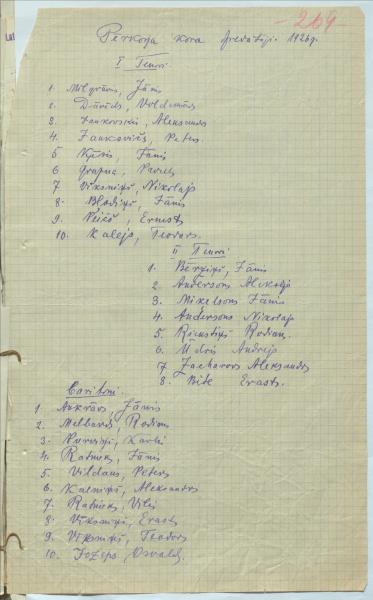 - 269
Pērkoņa kora dziedātāji. 1926g.
I Tenori.
1. Milgrāvis, Jānis
2. Dāvids, Voldemārs
3. Jankovskis, Aleksandrs
4. Jankovičs, Peters
5 Jānis
6 Pavils
7 Vīksniņš, Nikolajs
8. Blodiņš, Jānis
9. Ernests
10. Kalējs, Teodors.
II Tenori
1. Bērziņš, Jānis
2. Andersons Aleksdjs
3. Mikelsons Jānis
4. Andersons Nikolajs
5. Riekstiņš Rodions
6. Ūdris Andrejs
7 Zacharovs Aleksandrs
8. Bite Erasts.
Baritoni.
1. Ankrāvs, Jānis
2. Melbards, Rodions
3. Purviņš, Karlis
4. Ratnieks, Jānis
5. Vildaus, Peters
6. Kalniņš, Aleksandrs
7. Ratnieks, Vilis
8. Vīksniņš, Erasts
9. Vīksniņš, Teodors
10. Jozeps, Osvalds.